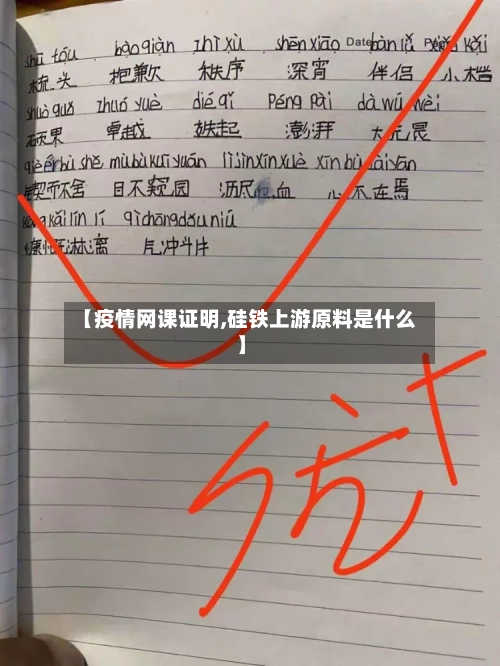 shū tóu bào qiàn zhì xù shēn xiāo Date bàn lǚ
梳头 抱歉 秩序 深宵 伴侣 小楷
shuò guǒ zhuó yuè dié qǐ péng pài dà wú wèi
硕果 卓越 迭起 澎湃 大无畏
qiè ér bù shě mù bù kuī yuán lì jìn xīn xuè xīn bù zài yān
锲而不舍 目不窥园 沥尽心血 心不在焉
kāng kǎi lín lí qì chōng dǒu niú
慷慨淋漓 气冲斗牛
【疫情网课证明,硅铁上游原料是什么
】
优+